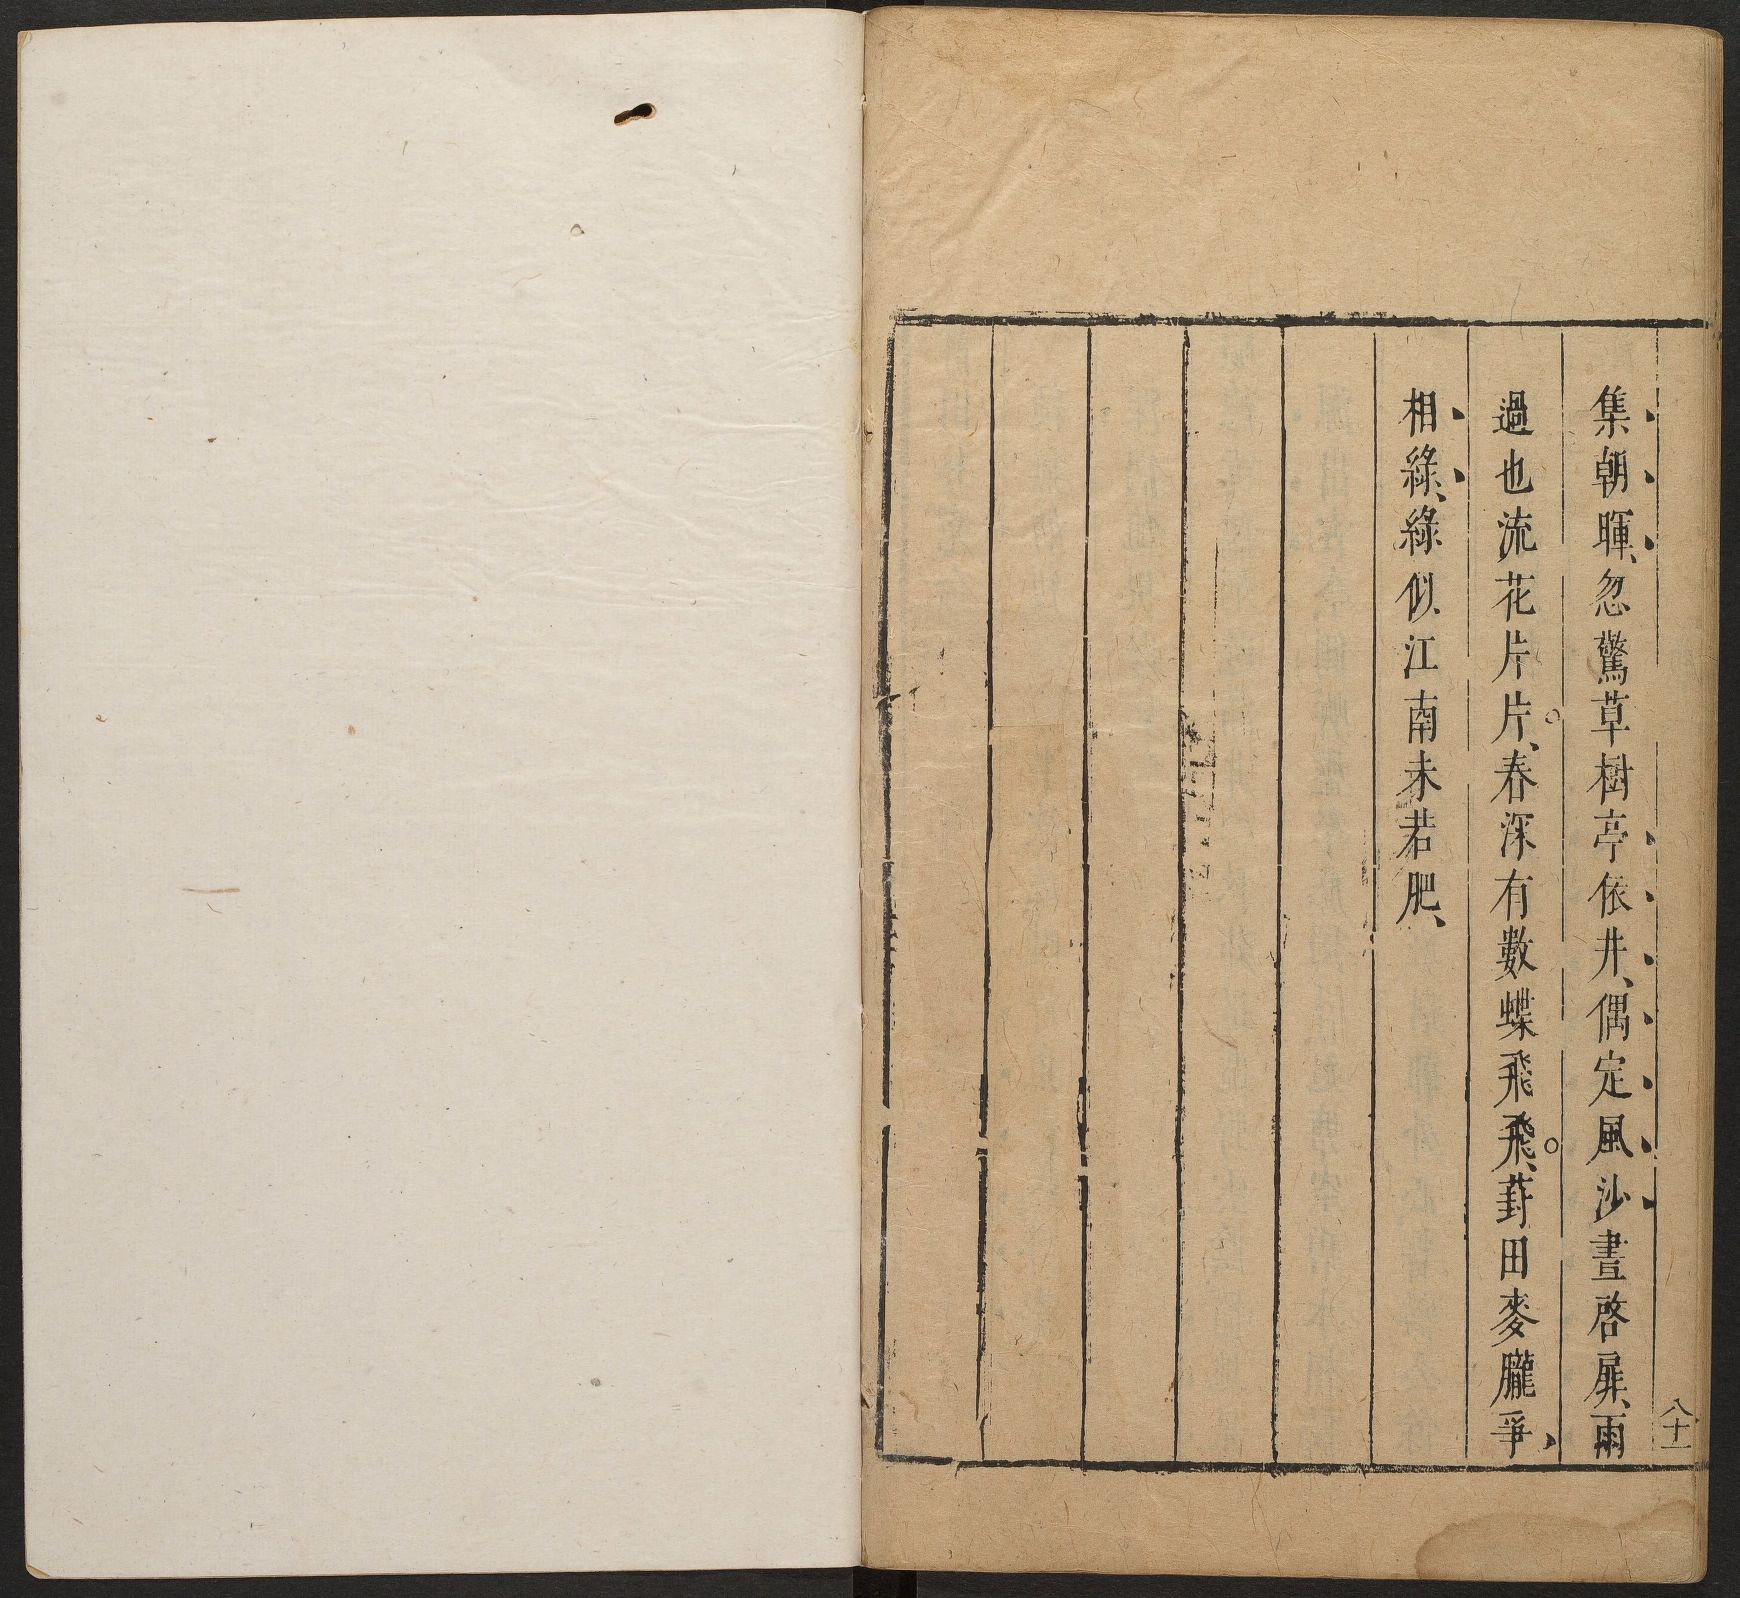 集朝暉、忽驚草樹亭依井、偶定風沙晝啓扉、雨
過也流花片片、春深有數蝶飛飛、葑田麥隴爭
相綠、綠似江南未若肥、
八十一